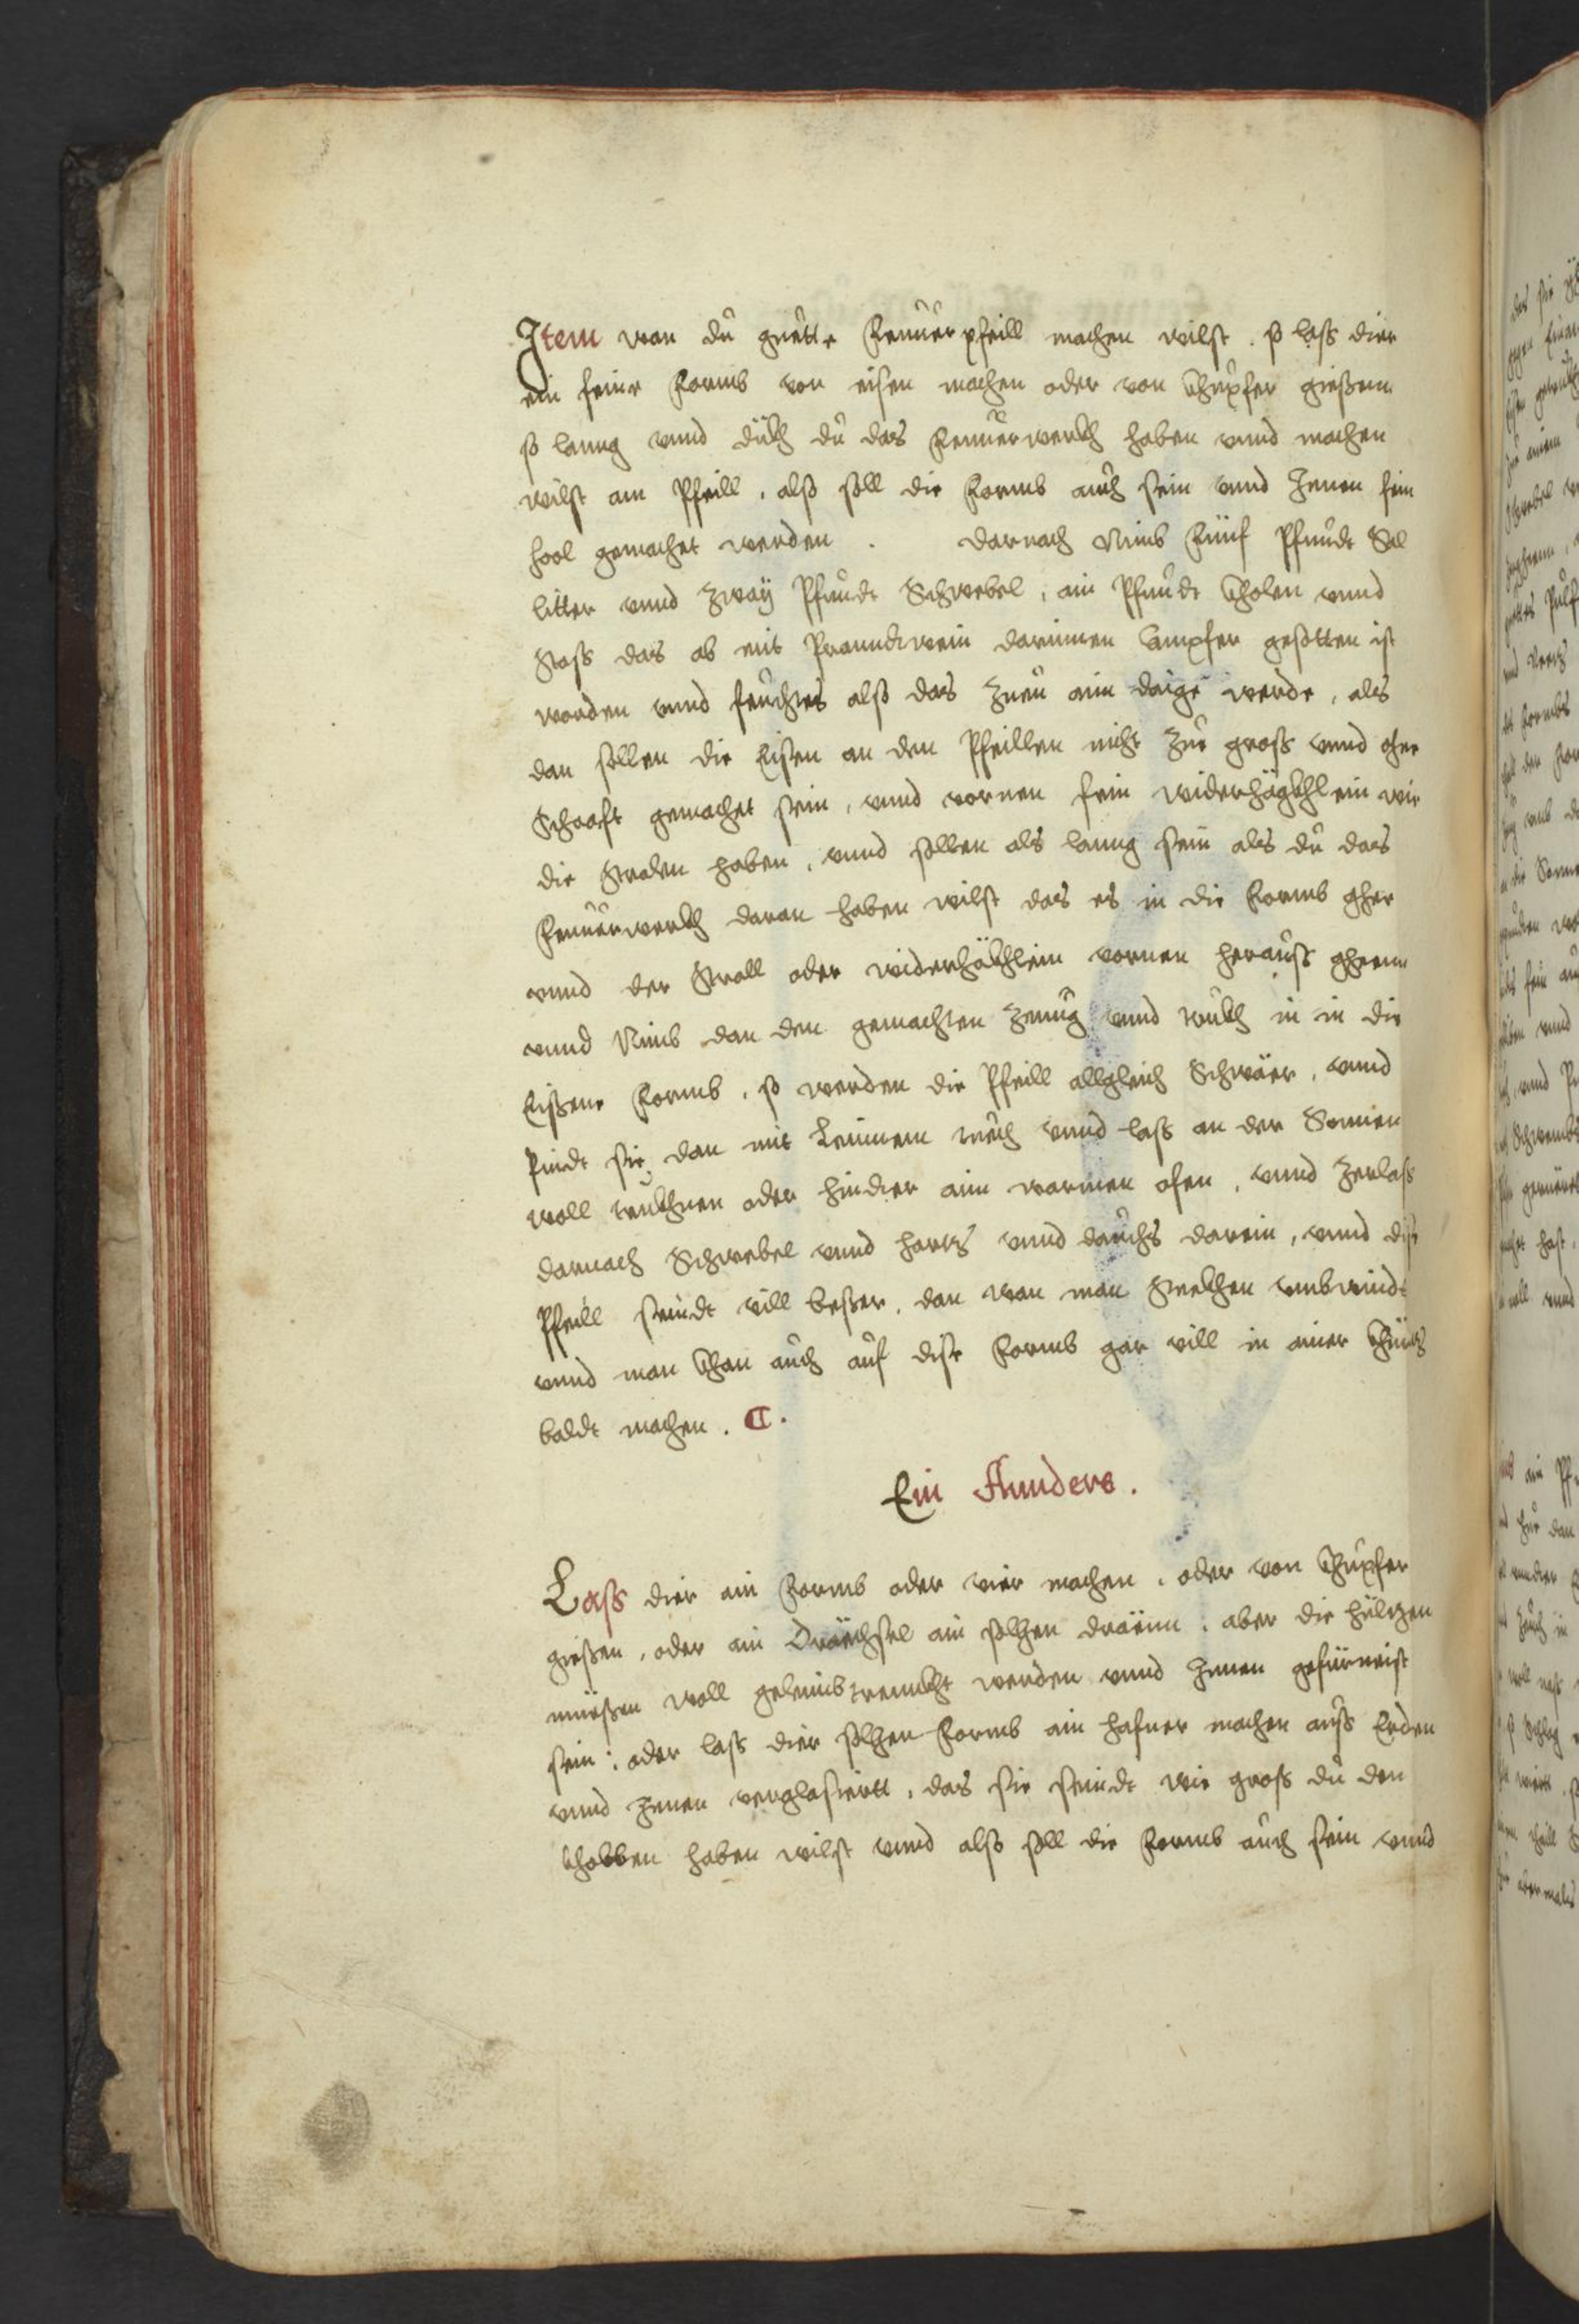 Item wan du guette Feuuer pfeill machen wilst. so lass dier
ein feine Formb von eisen machen oder von Khupfer giessenn
so lanng vnnd dickh du das Feuuerwerckh haben vnnd machen
wilst am Pfeill, also soll die Formb auch sein vnnd Innen fein
hool gemachet werden. darnach Nimb Fünf Pfundt Sal
litter vnnd Zway Pfundt Schwebel, ain Pfundt Kholen vnnd
Stoss das ab mit Pranndtwein darinnen Campfer gesotten ist
worden vnnd feuchts also das Zueu aim daige werde, als
dan sollen die Eisen an den Pfeillen nicht Zue gross vnnd ohne
Schaaft gemachet sein, vnnd vornen fein widerhägkhlein wie
die Stralen haben, vnnd sollen als lanng sein als du das
Feuuerwerckh daran haben wilst das es in die Formb ghee
vnnd der Strall oder widerhäkhlein vornen herauss gheenn
vnnd Nimb dan den gemachten Zeuug vnnd truckh in in die
Eissene Formb, so werden die Pfeill allgleich Schwäer, vnnd
Pindt sie dan mit Leinnem tuech vnnd lass an der Sonnen
woll truckhnen oder hindter aim warmen ofen, vnnd Zerlass
darnach Schwebel vnnd hartz vnnd dauchs darein, vnnd dise
Pfeill seindt vill besser, dan wan man Seckhen vmbwindt
vnnd man khan auch auf dise Formb gar vill in ainer Khürtz
baldt machen. C.
Ein Annders.
Lass dier ain Formb oder vier machen, oder von Khupfer
giessen, oder ain Dräechsel ain solhen dräenn, aber die hültzen
müessen woll geleimbtrenckht werden vnnd Innen gefürneist
sein: oder lass dier solhen Formb ain hafner machen auss Erden
vnnd Innen verglasiertt, das sie seindt wie gross du den
kholben haben wilst vnnd also soll die Formb auch sein vnnd